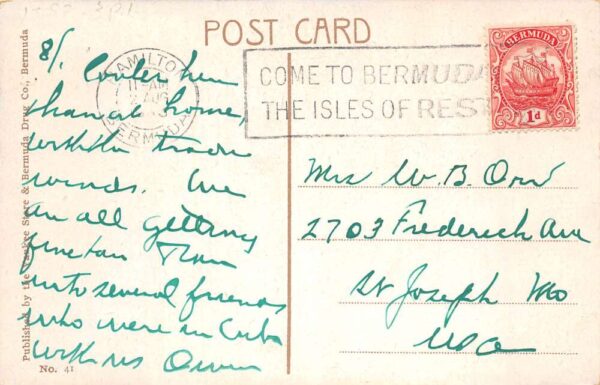 POST CARD
HAMILTON
BERMUDA
COME TO BERMUDA
THE ISLES OF REST
BERMUDA
1d
8/. Cooler here
than at home,
with the trade
winds. We
are all getting
fine tan. Ran
into several friends
who were in Cuba
with us Owen
Mrs W. B. Orr
2703 Frederick Ave
St Joseph Mo
USA
Published by the Yankee Store & Bermuda Drug Co., Bermuda
No. 41